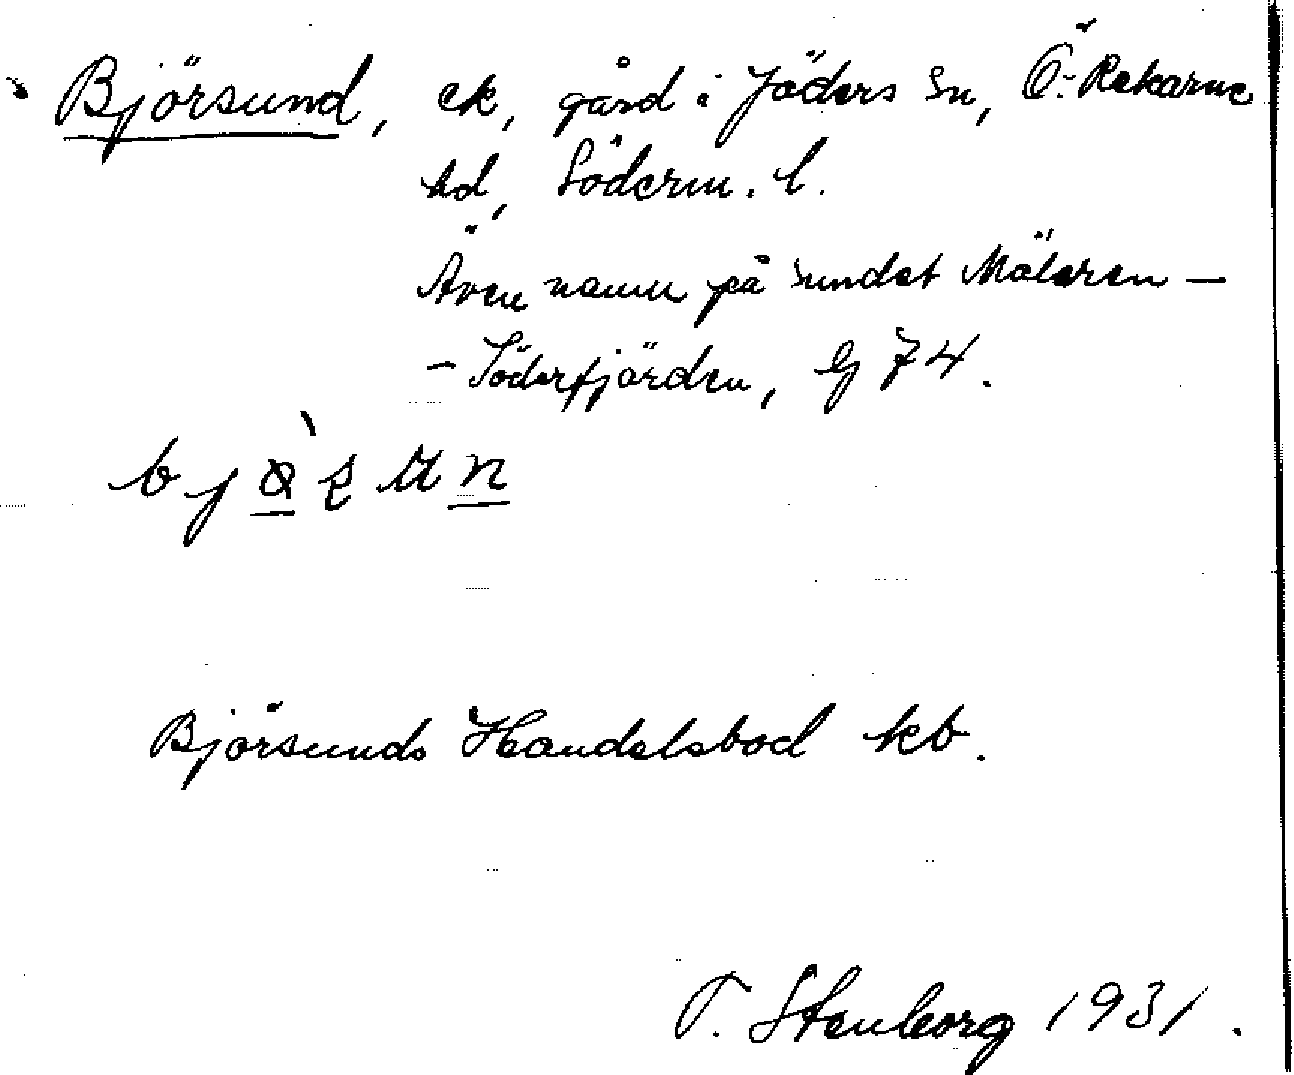 Björsund, ek, gård i Jäders sn, Ö.-Rekarne
hd, Söderm. l.
Även namn på sundet Mälaren —
— Söderfjärden, Eg 74.
Björsunds Handelsbod kb.
T. Stenborg 1931.